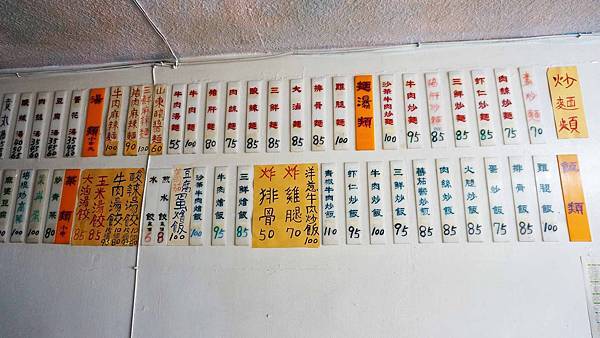 炒麵類
素炒麵 70
肉絲炒麵 75
虾仁炒麵 85
三鮮炒麵 85
炒麵 85
牛肉炒麵 95
沙茶牛肉炒麵 100
麵湯類
雞腿麵 100
排骨麵 85
大滷麵 85
三鮮麵 85
酸辣麵 75
肉絲麵 75
猪肝麵 85
牛肉麵 95
牛肉湯麵 55
山東麵 60
三鮮麻辣麵 90
牛肉麻辣麵 100
湯類 小中大
蛋花湯
豆腐湯
酸辣湯
肉絲湯
飯類
雞腿飯 100
排骨飯 85
蛋炒飯 70
肉絲炒飯 75
火腿炒飯 85
蕃茄炒飯 85
三鮮炒飯 95
牛肉炒飯 100
虾仁炒飯 95
青椒牛肉炒飯 110
洋葱牛肉炒飯 100
炸雞腿 70
炸排骨 50
三鮮燴飯 85
牛肉燴飯 95
沙茶牛肉燴飯 100
煎水餃 8
水餃 5
酸辣湯餃
牛肉湯餃 100
玉米湯餃 85
大滷湯餃 85
菜類 小中
炒青菜 80